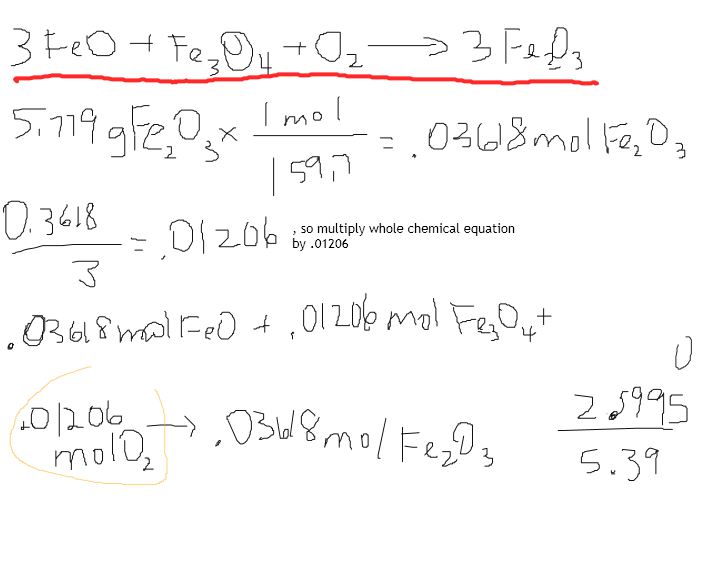 3 FeO + Fe3O4 + O2 → 3 Fe2O3
5.779 g Fe2O3 × 1 mol / 159.7 = .03618 mol Fe2O3
0.3618 / 3 = .01206 , so multiply whole chemical equation
by .01206
.03618 mol FeO + .01206 mol Fe3O4 +
.01206 mol O2 → .03618 mol Fe2O3
0
2.5995 / 5.39